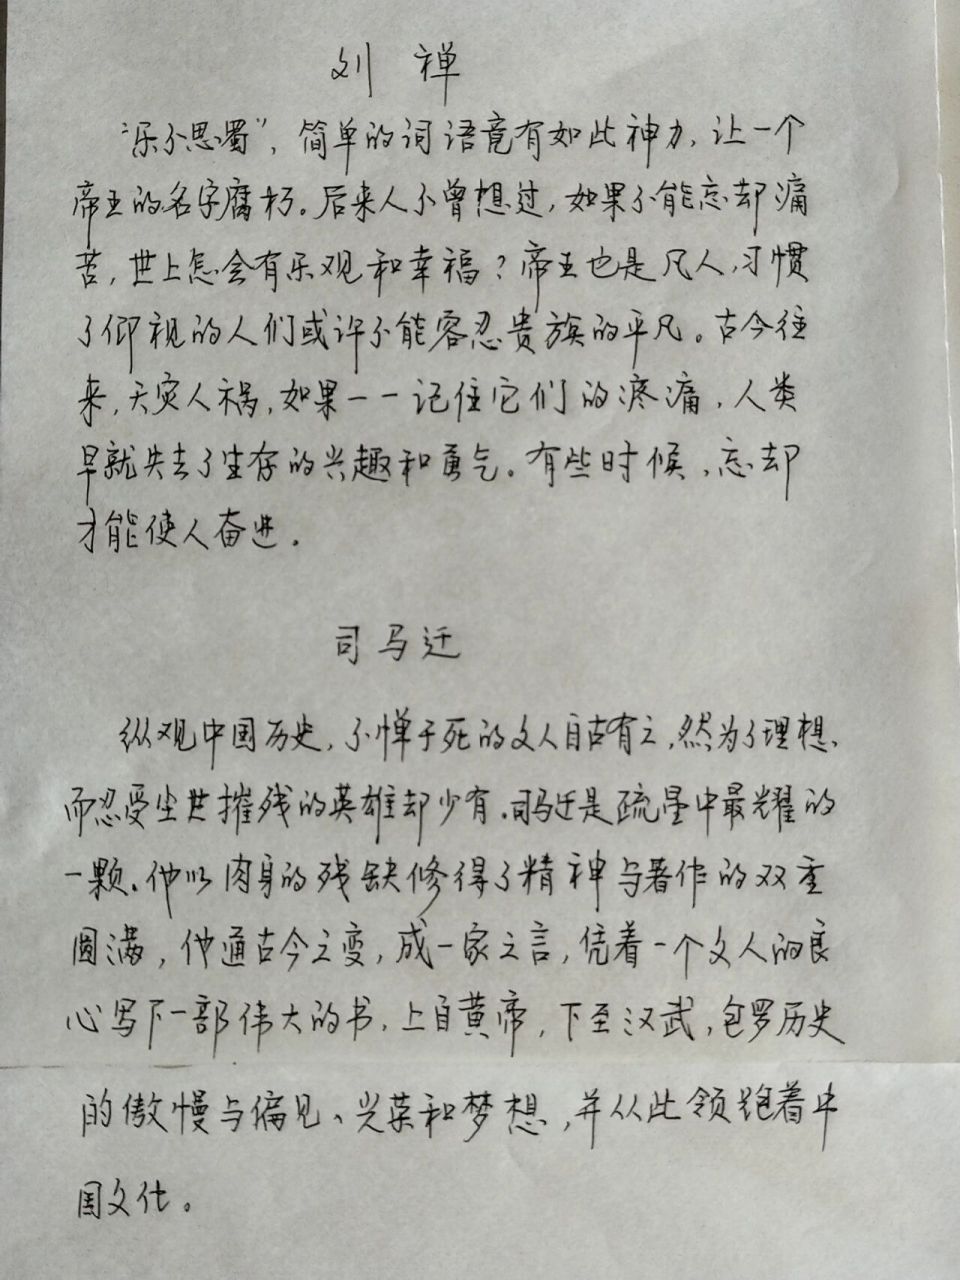 刘禅
"乐不思蜀"，简单的词语竟有如此神力，让一个
帝王的名字腐朽。后来人不曾想过，如果不能忘却痛
苦，世上怎会有乐观和幸福？帝王也是凡人，习惯
了仰视的人们或许不能容忍贵族的平凡。古今往
来，天灾人祸，如果一一记住它们的疼痛，人类
早就失去了生存的兴趣和勇气。有些时候，忘却
才能使人奋进。
司马迁
纵观中国历史，不惮于死的文人自古有之，然为了理想、
而忍受尘世摧残的英雄却少有。司马迁是疏星中最耀的
一颗。他以肉身的残缺修得了精神与著作的双重
圆满，他通古今之变，成一家之言，凭着一个文人的良
心写下一部伟大的书，上自黄帝，下至汉武，包罗历史
的傲慢与偏见、光荣和梦想，并从此领跑着中
国文化。